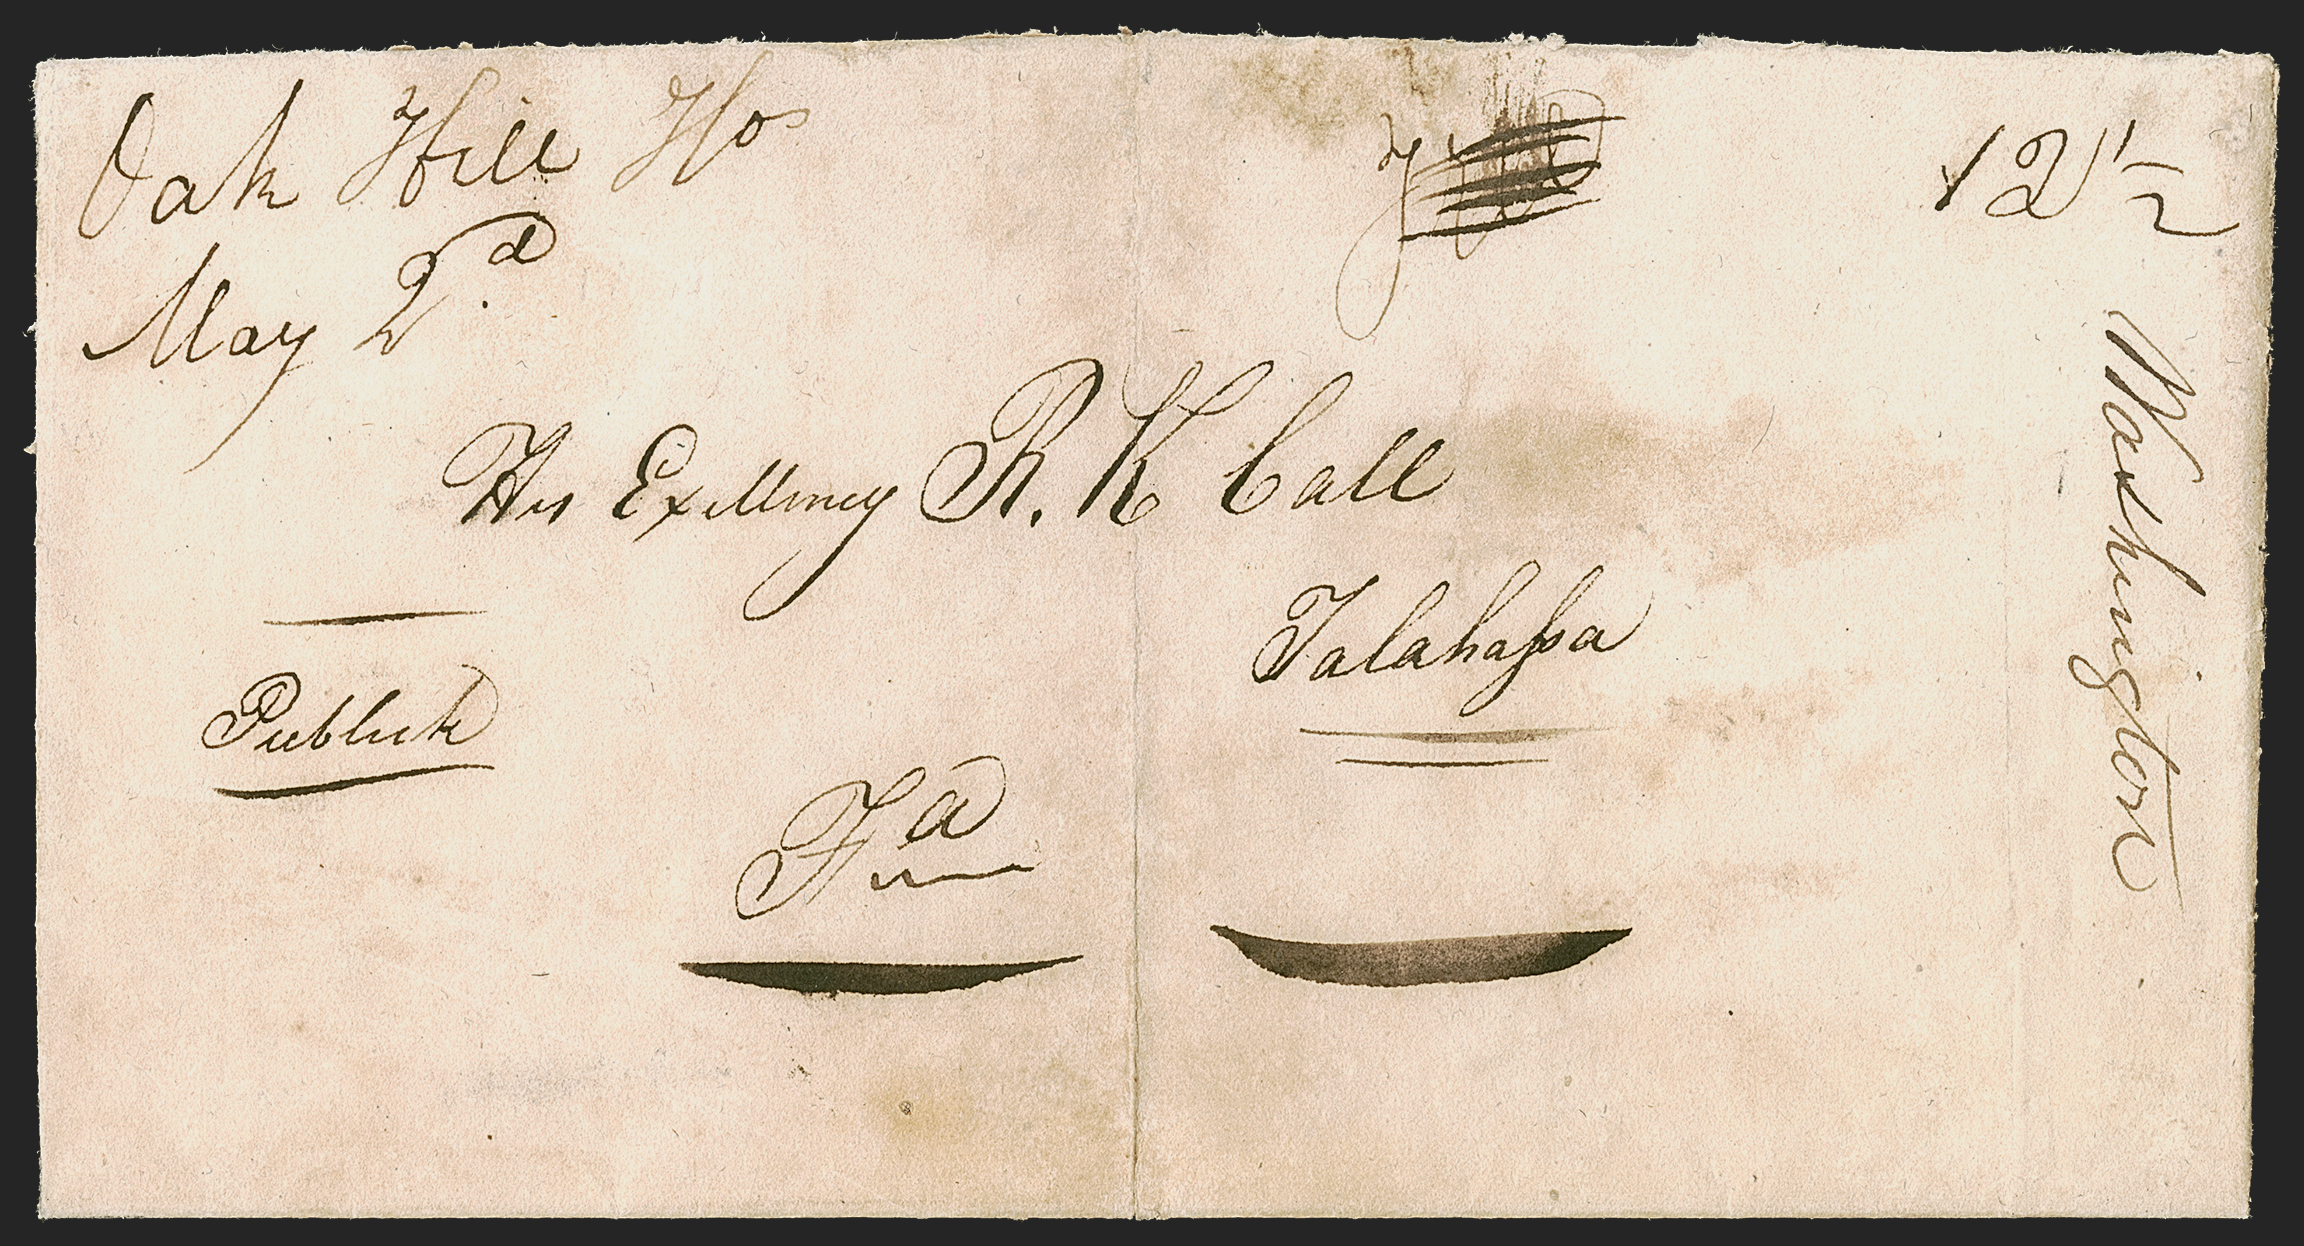 Oak Hill Ho
12½
May 2d
His Exellency R. K Call
Talahassa
Publick
Fa
Washington